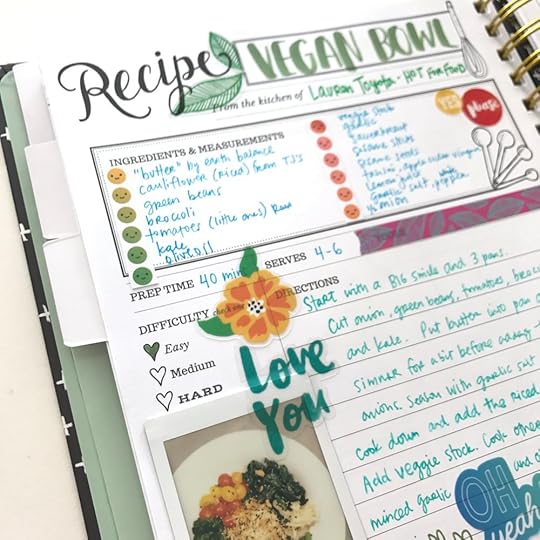 Recipe VEGAN BOWL
From the kitchen of Lauren Toyota - HOT FOR FOOD
YES Please
INGREDIENTS & MEASUREMENTS
"butter" by earth balance
cauliflower (riced) from TJ's
green beans
broccoli
tomatoes (little ones) Red
kale
olive oil
veggie stock
garlic
sesame seeds
tahini, apple cider vinegar
lemon juice
garlic salt, white pepper
onion
PREP TIME 40 min SERVES 4-6
DIFFICULTY check one
Easy
Medium
HARD
Love
You
DIRECTIONS
Start with a BIG smile and 3 pans.
Cut onion, green beans, tomatoes, broccoli
and kale. Put butter into pan
simmer for a bit before adding
onions. Season with garlic salt
cook down and add the riced
Add veggie stock. Cook
minced garlic and
OH
yeah